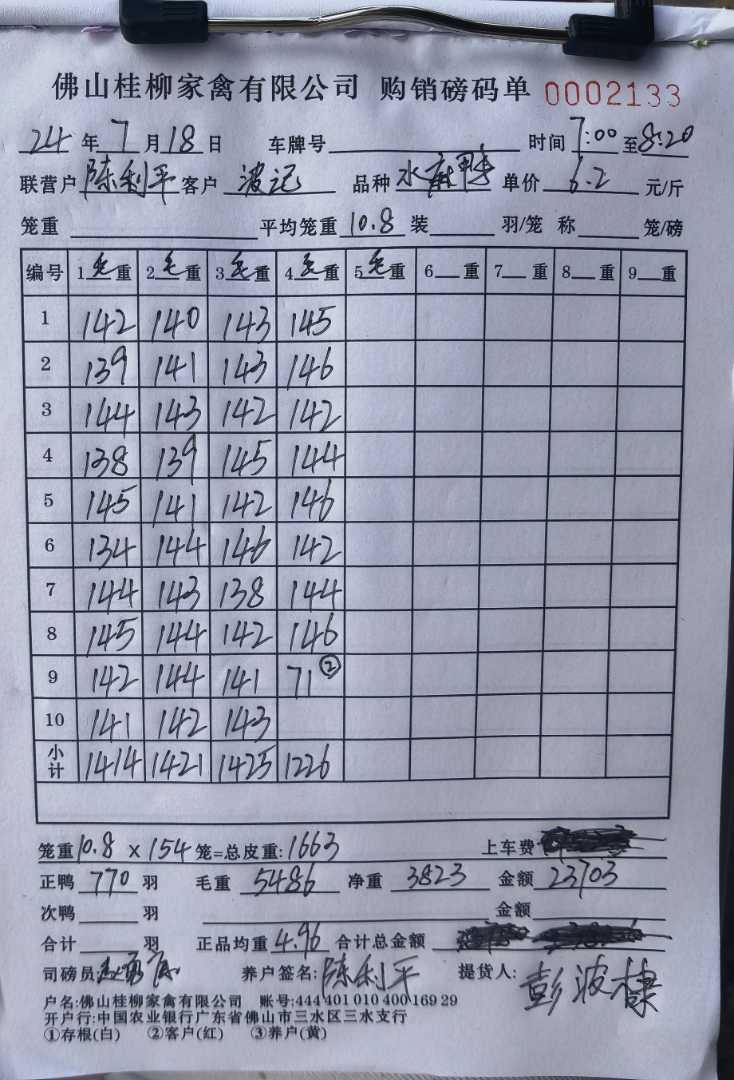 佛山桂柳家禽有限公司 购销磅码单 0002133
24年7月18日 车牌号 时间7:00至8:20
联营户 陈利平 客户 波记 品种 水麻鸭 单价 6.2 元/斤
笼重 平均笼重 10.8 装 羽/笼 称 笼/磅
编号 1毛重 2毛重 3毛重 4毛重 5毛重 6 重 7 重 8 重 9 重
1 142 140 143 145
2 139 141 143 146
3 144 143 142 142
4 138 139 145 144
5 145 141 142 146
6 134 144 146 142
7 144 143 138 144
8 145 144 142 146
9 142 144 141 71②
10 141 142 143
小计 1414 1421 1425 1226
笼重10.8×154笼=总皮重:1663 上车费
正鸭 770 羽 毛重 5486 净重 3823 金额 23703
次鸭 羽 金额
合计 羽 正品均重 4.96 合计总金额
司磅员 养户签名:陈利平 提货人:彭波棣
户名:佛山桂柳家禽有限公司 账号:444 401 010 400 169 29
开户行:中国农业银行广东省佛山市三水区三水支行
①存根(白) ②客户(红) ③养户(黄)